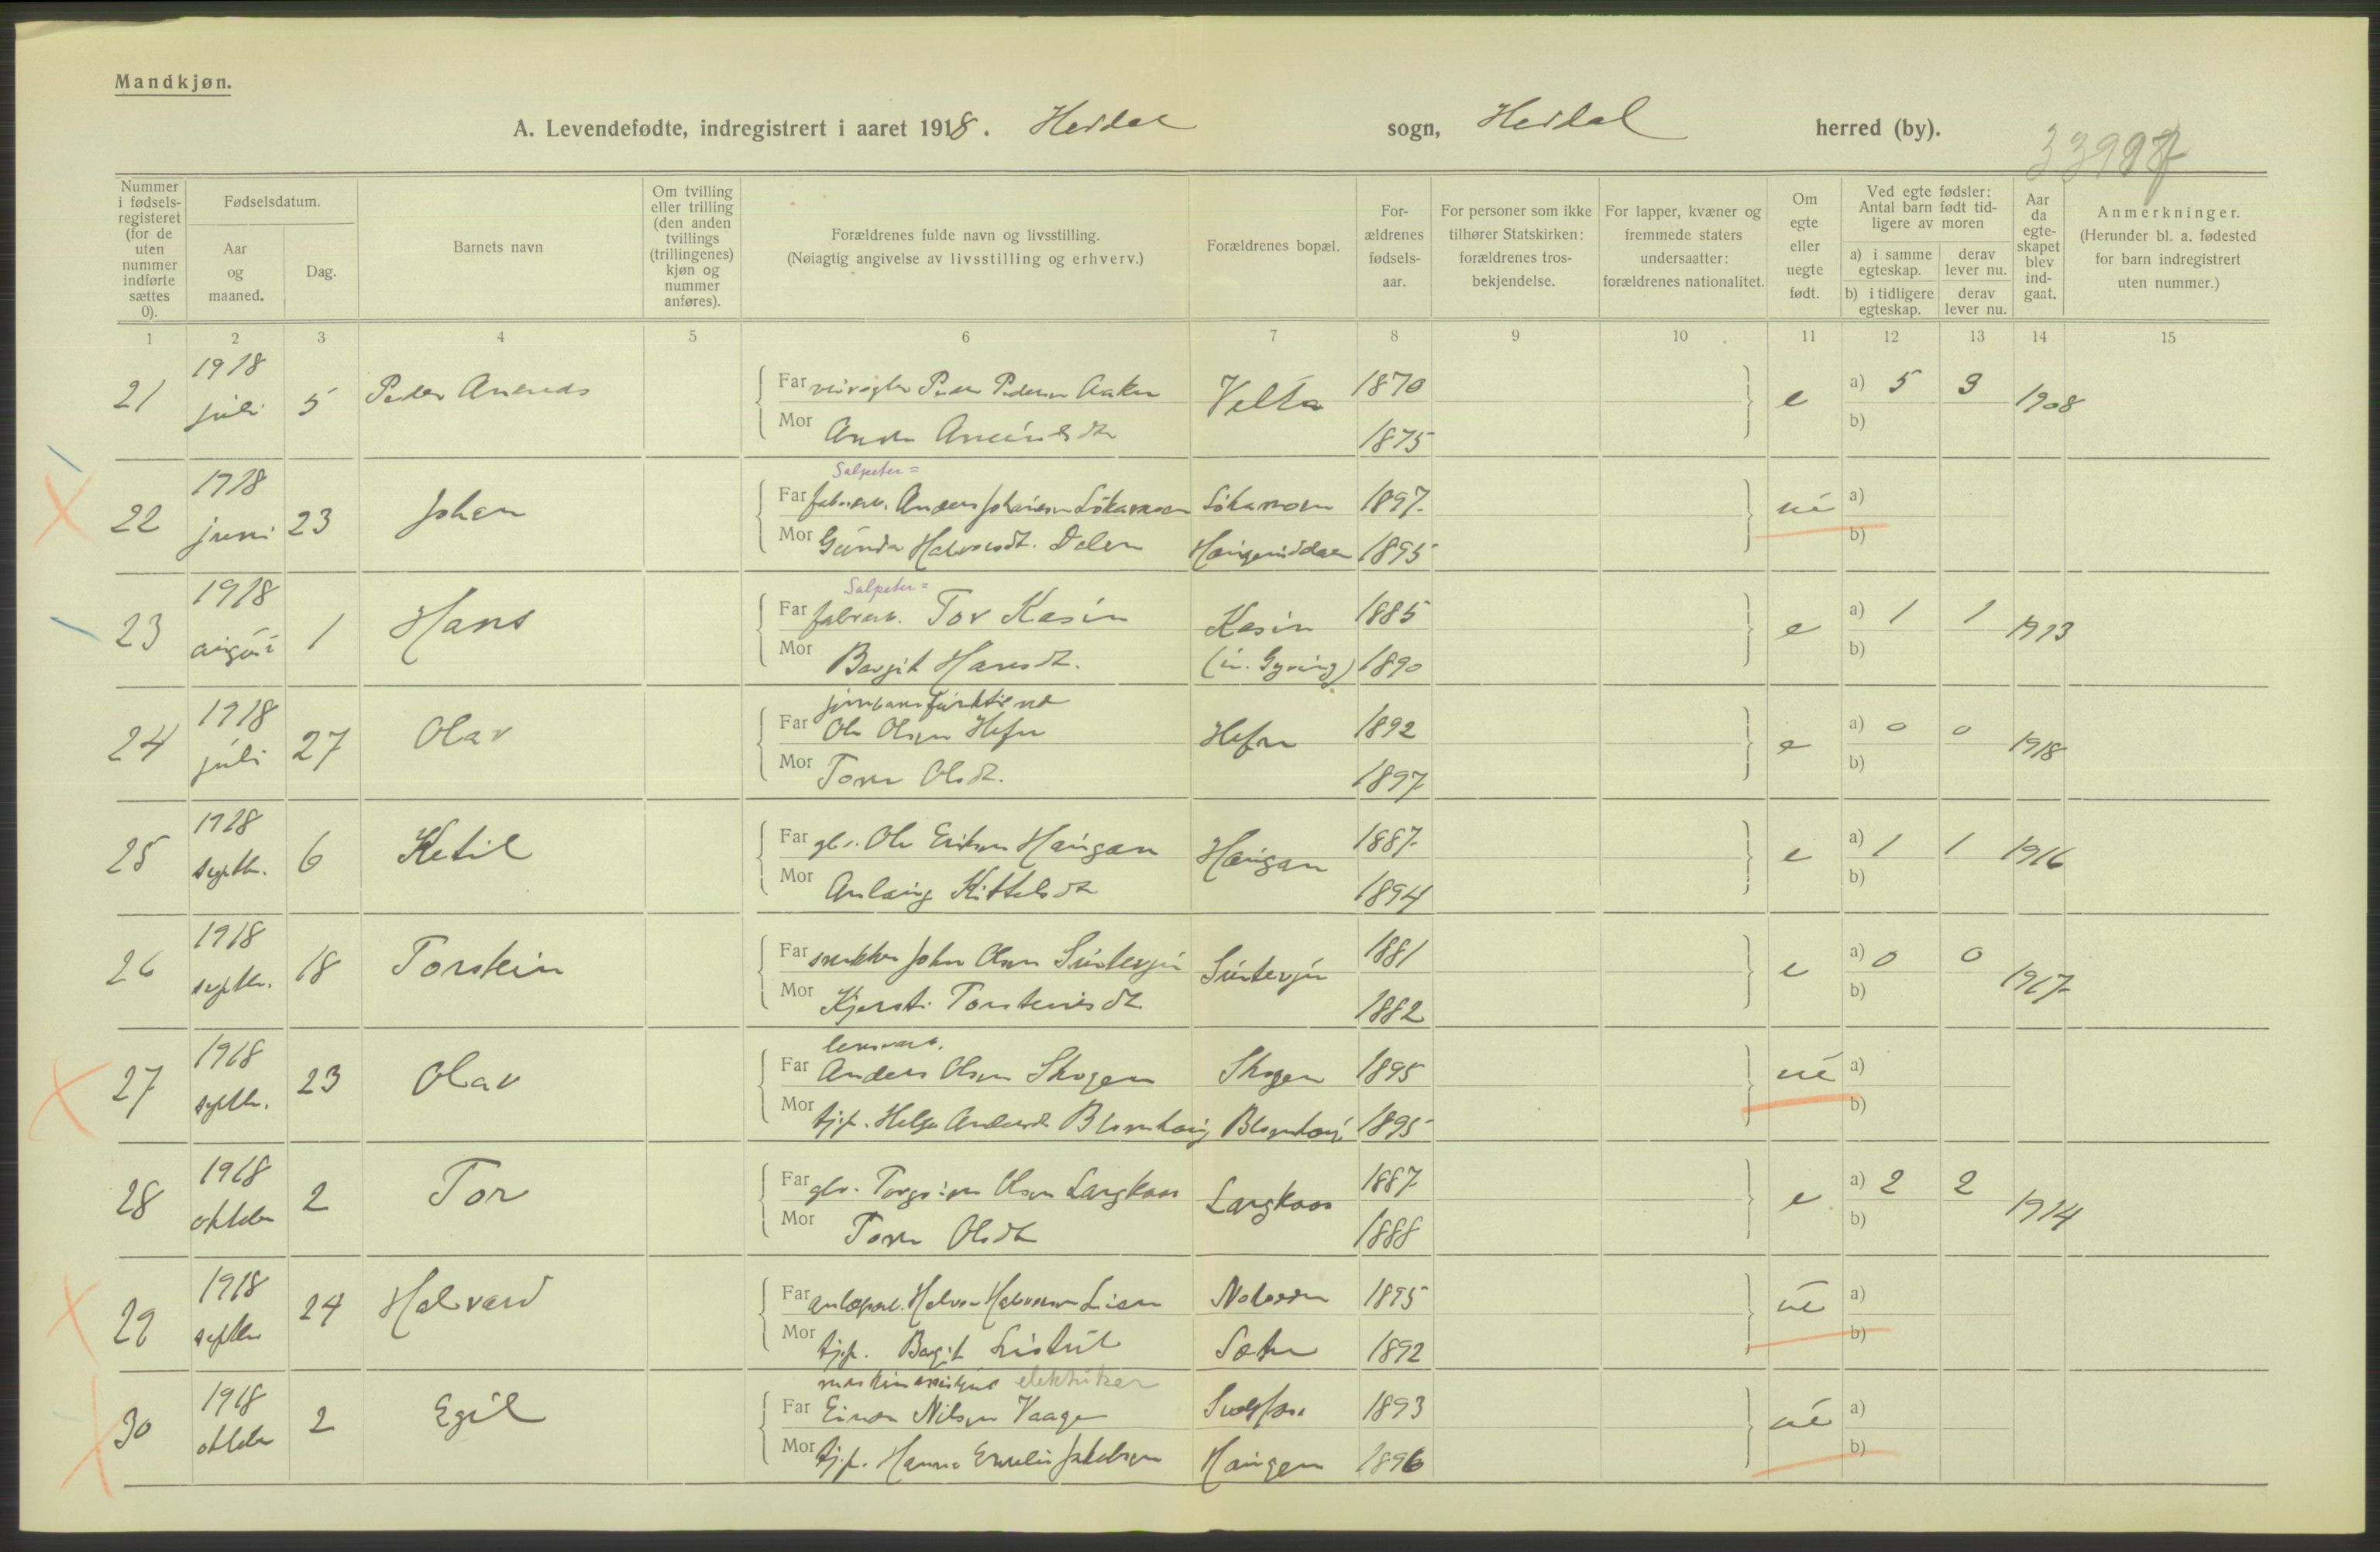 Mandkjøn.
A. Levendefødte, indregistrert i aaret 1918. Herdal sogn, Herdal herred (by).
Nummer i fødselsregisteret (for de uten nummer indførte sættes 0).
Fødselsdatum.
Aar og maaned.
Dag.
Barnets navn
Om tvilling eller trilling (den anden tvillings (trillingenes) kjøn og nummer anføres).
Forældrenes fulde navn og livsstilling.
(Nøiagtig angivelse av livsstilling og erhverv.)
Forældrenes bopæl.
Forældrenes fødselsaar.
For personer som ikke tilhører Statskirken: forældrenes trosbekjendelse.
For lapper, kvæner og fremmede staters undersaatter: forældrenes nationalitet.
Om egte eller uegte født.
Ved egte fødsler: Antal barn født tidligere av moren
a) i samme egteskap.
derav lever nu.
b) i tidligere egteskap.
derav lever nu.
Aar da egteskapet blev indgaat.
Anmerkninger.
(Herunder bl. a. fødested for barn indregistrert uten nummer.)
1 2 3 4 5 6 7 8 9 10 11 12 13 14 15
21 1918 juli 5 Peder
Far Peder Pedersen Aaker Velta 1870 e a) 5 3 1908
Mor 1875 b)
22 1918 juni 23 Johan
Salpeter=
Far fabrarb. Anders Johansen 1897 ue a)
Mor Gunda Halvorsdt. Dalen 1895 b)
23 1918 august 1 Hans
Salpeter=
Far fabrarb. Tov Kasin Kasin 1885 e a) 1 1 1913
Mor Bergit Hansdt. 1890 b)
24 1918 juli 27 Olav
Far Ole Olsen Hefre Hefre 1892 e a) 0 0 1918
Mor Tone Olsdt. 1897 b)
25 1918 septbr. 6 Ketil
Far Ole Eriksen Haugan Haugan 1887 e a) 1 1 1916
Mor Anlaug Kittelsdt 1894 b)
26 1918 septbr. 18 Torstein
Far snekker John Olsen 1881 e a) 0 0 1917
Mor Kjersti Torsteinsdt 1882 b)
27 1918 septbr. 23 Olav
Far Anders Olsen Skogen Skogen 1895 ue a)
Mor tjp. Helga Andersdt Blomhaug Blomhaug 1895 b)
28 1918 oktober 2 Tor
Far Torgrim Olsen Langkaas Langkaas 1887 e a) 2 2 1914
Mor Tone Olsdt 1888 b)
29 1918 septbr 24 Halvard
Far anlægsarb. Halvor Halvorsen Lien Notodden 1895 ue a)
Mor tjp. Bergit 1892 b)
30 1918 oktober 2 Egil
elektriker
Far Einar Nilsen Vaage Svælgfos 1893 ue a)
Mor tjp. Hanna Emelie Jakobsen Haugen 1896 b)